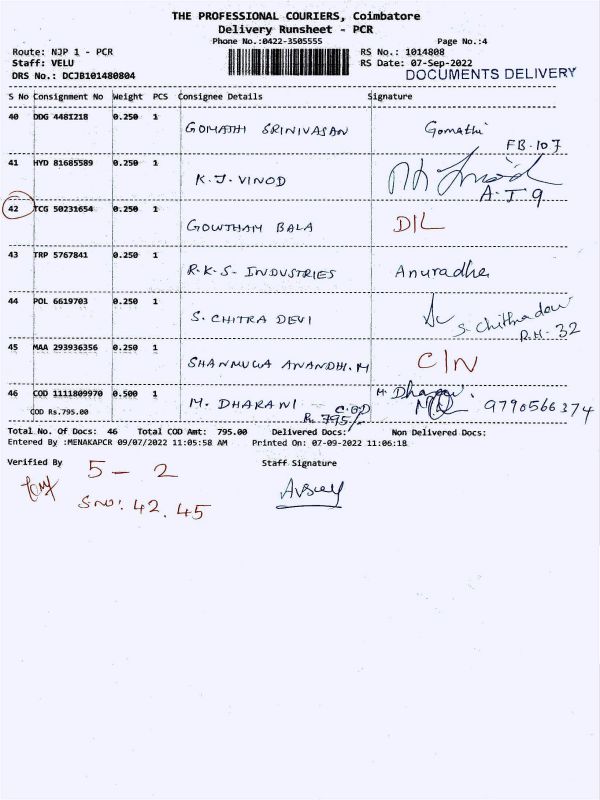 THE PROFESSIONAL COURIERS, Coimbatore
Delivery Runsheet - PCR
Phone No.:0422-3505555 Page No.:4
Route: NJP 1 - PCR RS No.: 1014808
Staff: VELU RS Date: 07-Sep-2022
DRS No.: DCJB101480804 DOCUMENTS DELIVERY
S No Consignment No Weight PCS Consignee Details Signature
40 DDG 4481218 0.250 1 GOMATHI SRINIVASAN Gomathi
FB-107
41 HYD 81685589 0.250 1 K.J. VINOD
A-T 9
42 TCG 50231654 0.250 1 GOWTHAM BALA D/L
43 TRP 5767841 0.250 1 R.K.S- INDUSTRIES Anuradha
44 POL 6619703 0.250 1 S. CHITRA DEVI S. Chithradevi
R.H- 32
45 MAA 293936356 0.250 1 SHANMUGA ANANDHI.M C/N
46 COD 1111809970 0.500 1 M. DHARANI C.OD M. Dharani
COD Rs.795.00 Rs. 795/- 9790566374
Total No. Of Docs: 46 Total COD Amt: 795.00 Delivered Docs: Non Delivered Docs:
Entered By :MENAKAPCR 09/07/2022 11:05:58 AM Printed On: 07-09-2022 11:06:18
Verified By 5 - 2 Staff Signature
S no: 42, 45